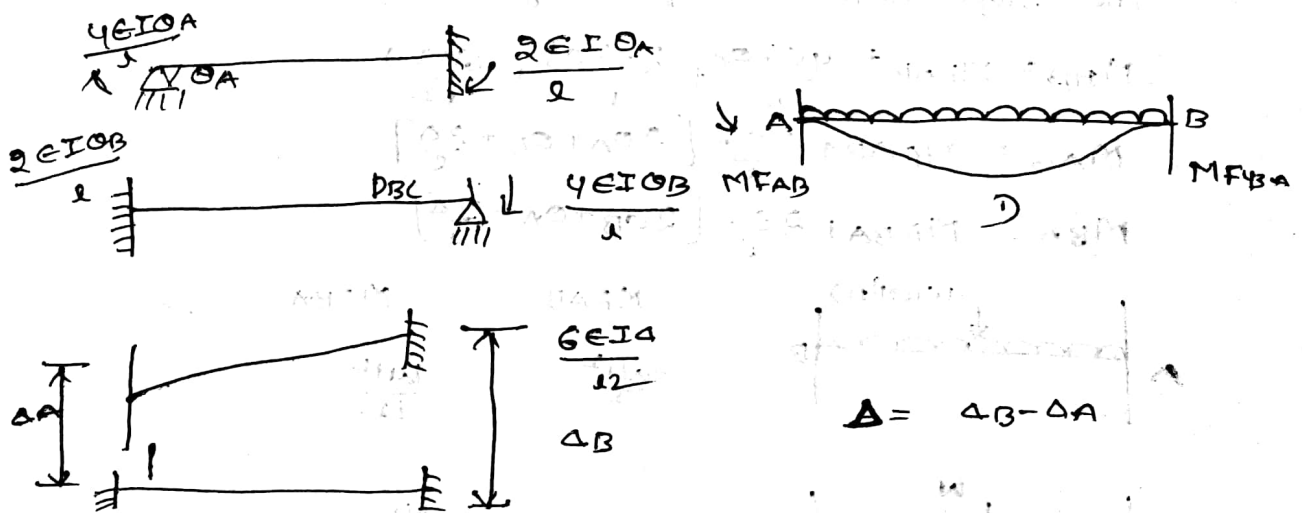 4EIθA
l
θA
2EIθA
l
2EIθB
l
DBC
4EIθB
l
A
B
MFAB
MFBA
D
ΔA
6EIΔ
l2
ΔB
Δ = ΔB-ΔA